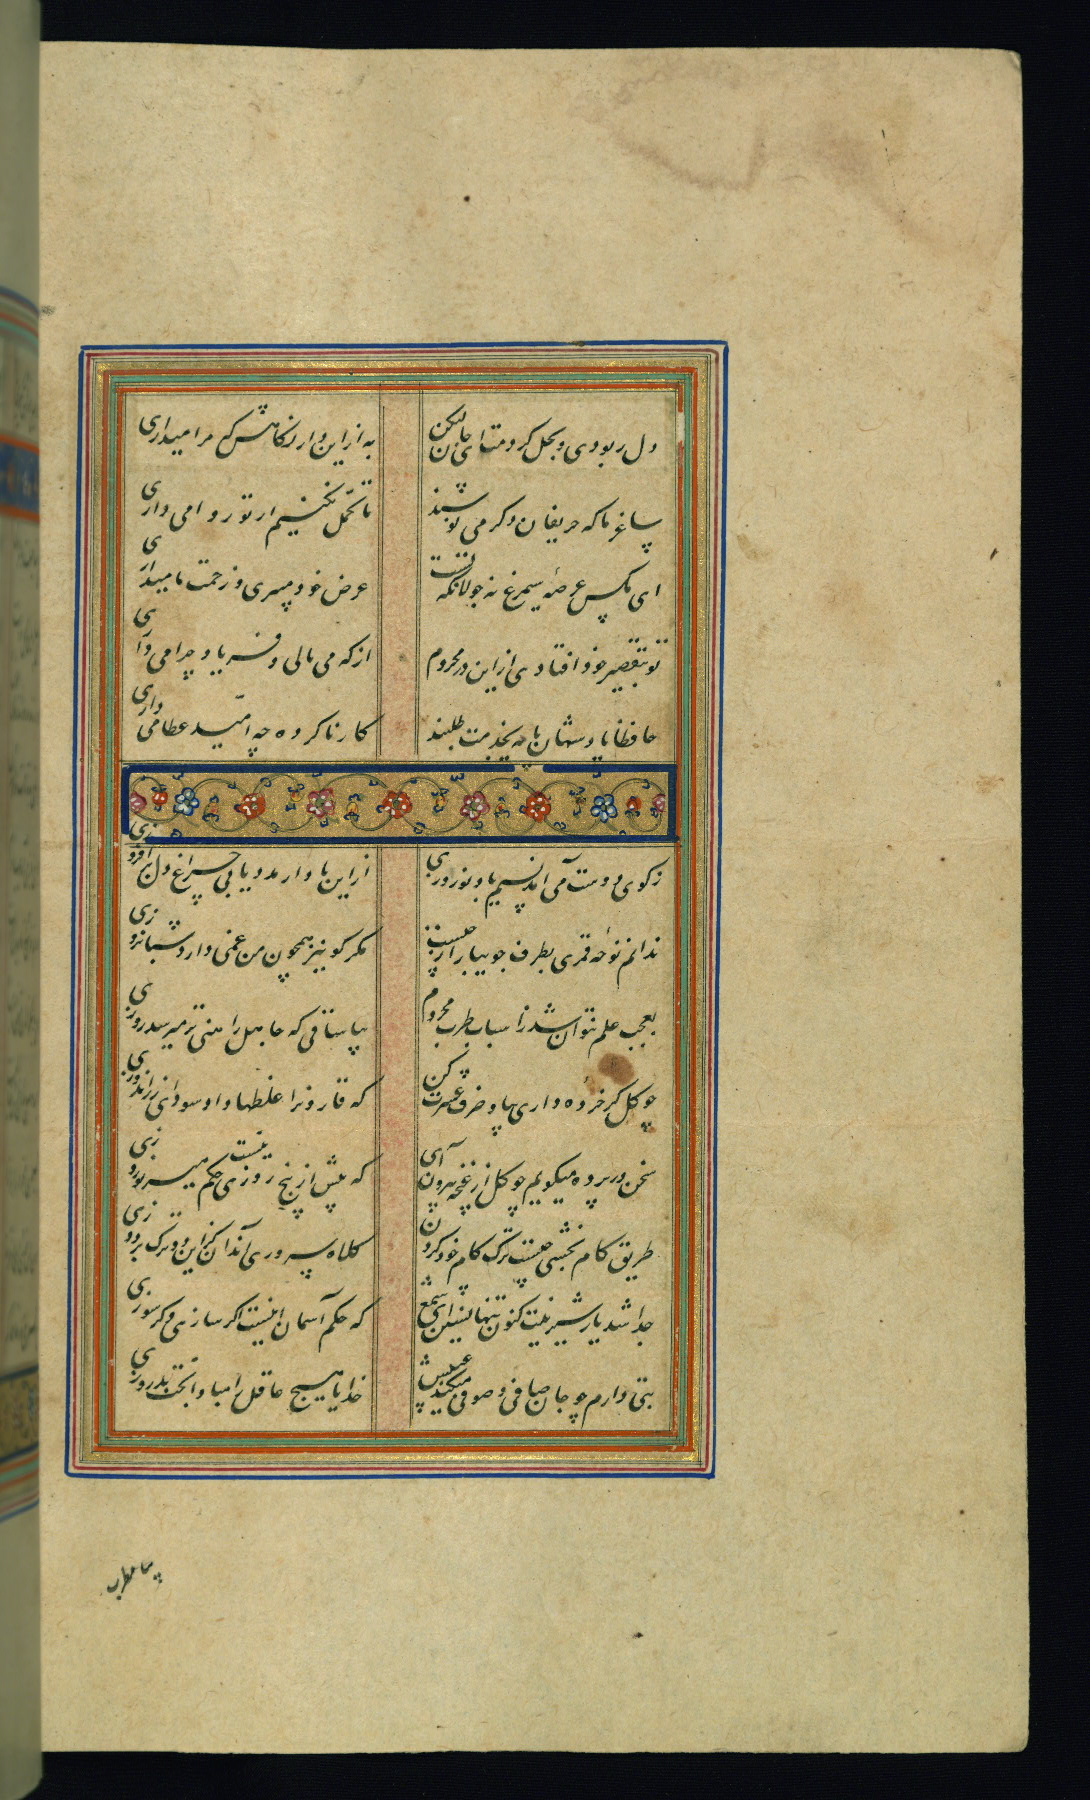 دل ربودی و بحل کردمت ای جان لیکن
به از این دار نگاهش که مرا میداری
ساغر ما که حریفان دگر می نوشند
ما تحمل نکنیم ار تو روا می داری
ای مگس عرصهٔ سیمرغ نه جولانگه تست
عرض خود میبری و زحمت ما میداری
تو بتقصیر خود افتادی از این در محروم
از که می نالی و فریاد چرا می داری
حافظا پادشهان پایه بخدمت طلبند
کار ناکرده چه امّید عطا می داری
ز کوی دوست می آمد نسیم باد نوروزی
از این باد ار مدد یابی چراغ دل برافروزی
ندانم نوحه قمری بطرف جویباران چیست
مگر کو نیز همچون من غمی دارد شبانروزی
بعجب علم نتوان شد ز اسباب طرب محروم
بیا ساقی که جاهل را هنی تر میرسد روزی
چو گل گر خردهٔ داری بیا و صرف عشرت کن
که قارونرا غلطها داد سودای زراندوزی
سخن در پرده میگویم چو گل از غنچه بیرون آی
که بیش از پنج روزی نیست حکم میر نوروزی
طریق کام بخشی چیست ترک کام خود کردن
کلاه سروری آنست کز این ترک بردوزی
جدا شد یار شیرینت کنون تنها نشین ای شمع
که حکم آسمان اینست اگر سازی و گر سوزی
بتی دارم چو جان صافی و صوفی میکند عیبش
خدایا هیچ عاقل را مبادا بخت بد روزی